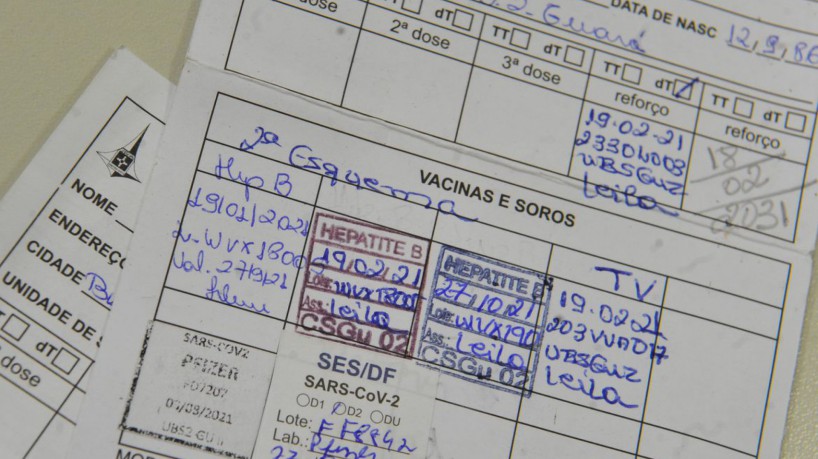 DATA DE NASC 12,9,86
dose
TT dT
2ª dose
TT dT
3ª dose
TT dT
reforço
19.02.21
UBSGU2
Leila
TT dT
reforço
18
02
2031
2º Esquema
VACINAS E SOROS
Hep B
19/01/2021
Val. 27/9/21
HEPATITE B
19/02/21
Lote:
Ass: Leila
CSGu 02
HEPATITE B
27/10/21
Lote: WVX190
Ass.: Leila
CSGu 02
TV
19.02.21
UBSGU2
Leila
SARS-COV2
PFIZER
UBS2-GU
SES/DF
SARS-CoV-2
D1 D2 DU
Lote:
Lab.: Pfizer
NOME
ENDEREÇ
CIDADE
UNIDADE DE
dT
dose